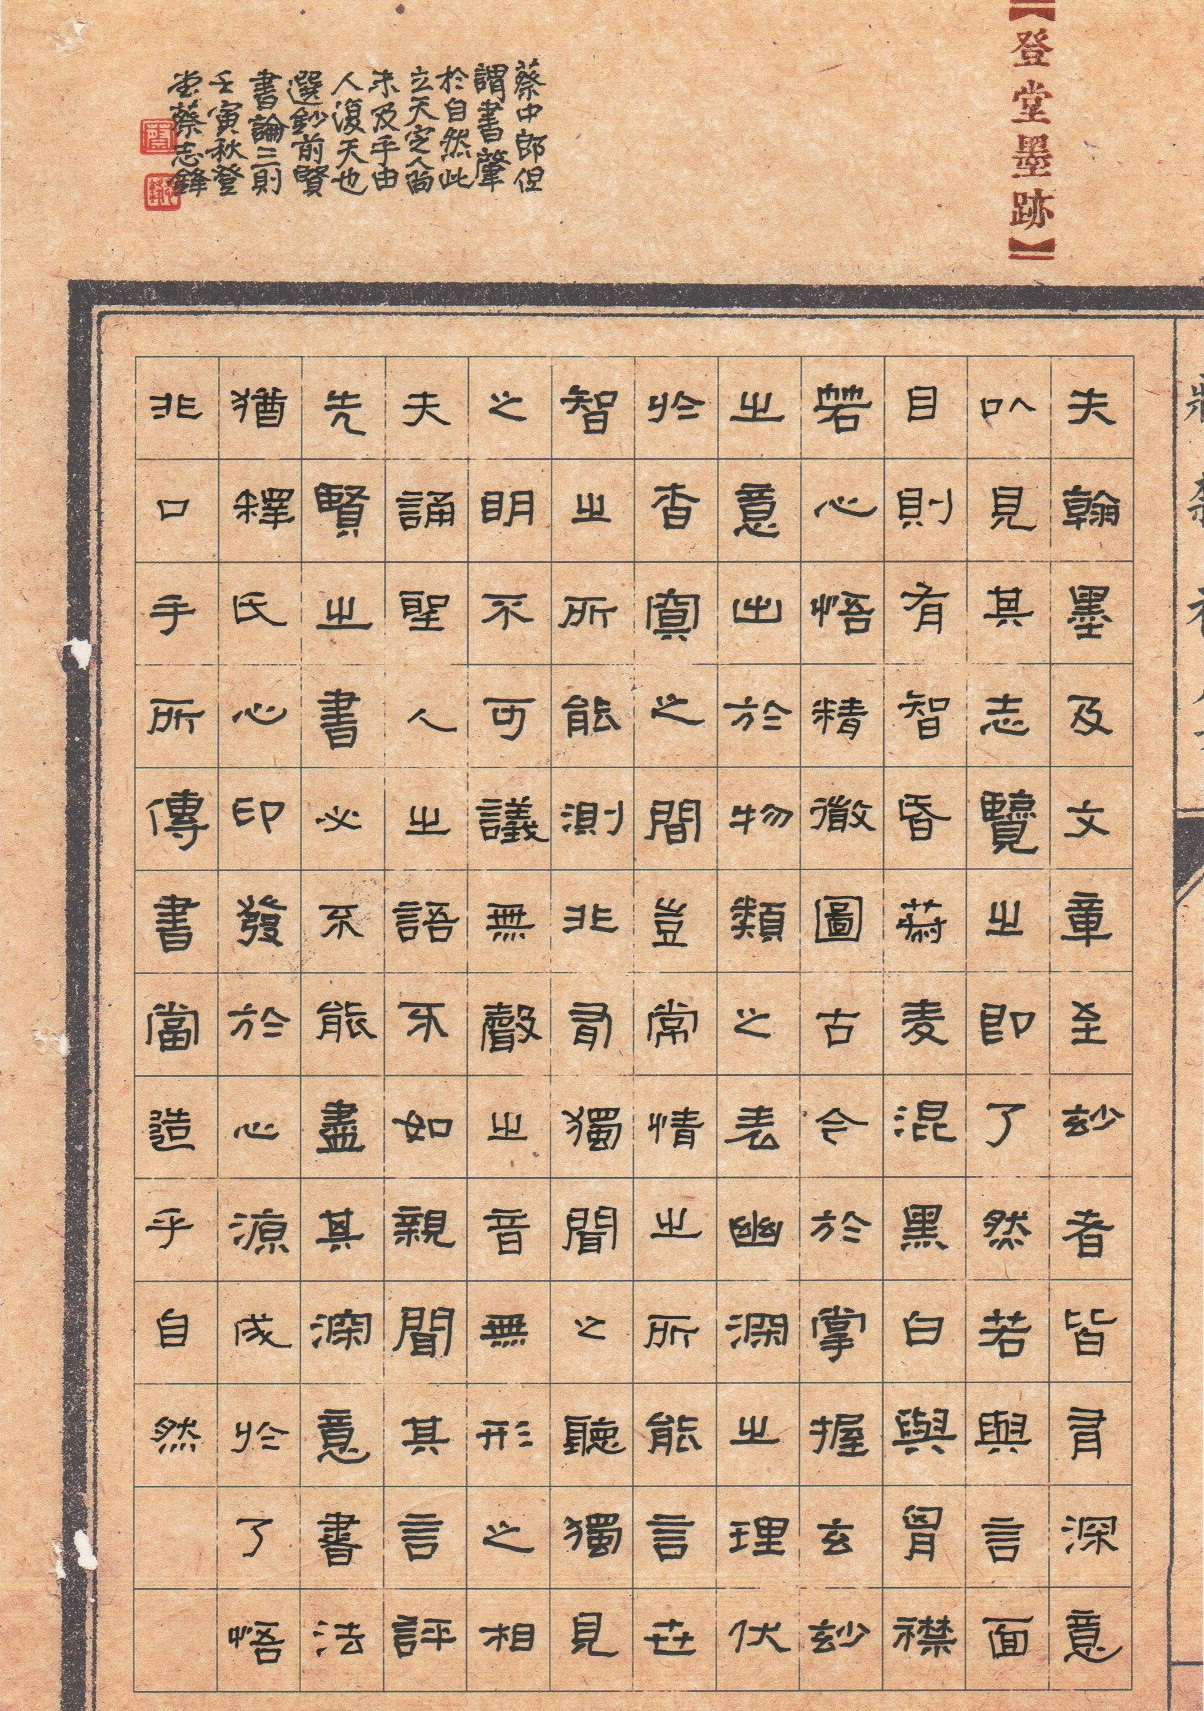 【登堂墨跡】
夫翰墨及文章至玅者皆有深意
以見其志覽之即了然若與言面
目則有智昏菽麦混黑白與胷襟
若心悟精徹圖古今於掌握玄玅
之意出於物類之表幽深之理伏
於杳冥之間豈常情之所能言世
智之所能測非有獨聞之聽獨見
之明不可議無聲之音無形之相
夫誦聖人之語不如親聞其言評
先賢之書必不能盡其深意書法
猶釋氏心印發於心源成於了悟
非口手所傳書當造乎自然
蔡中郎但
謂書肇
於自然此
立天定人尚
未及乎由
人復天也
選鈔前賢
書論三則
壬寅秋登
堂蔡志鋒